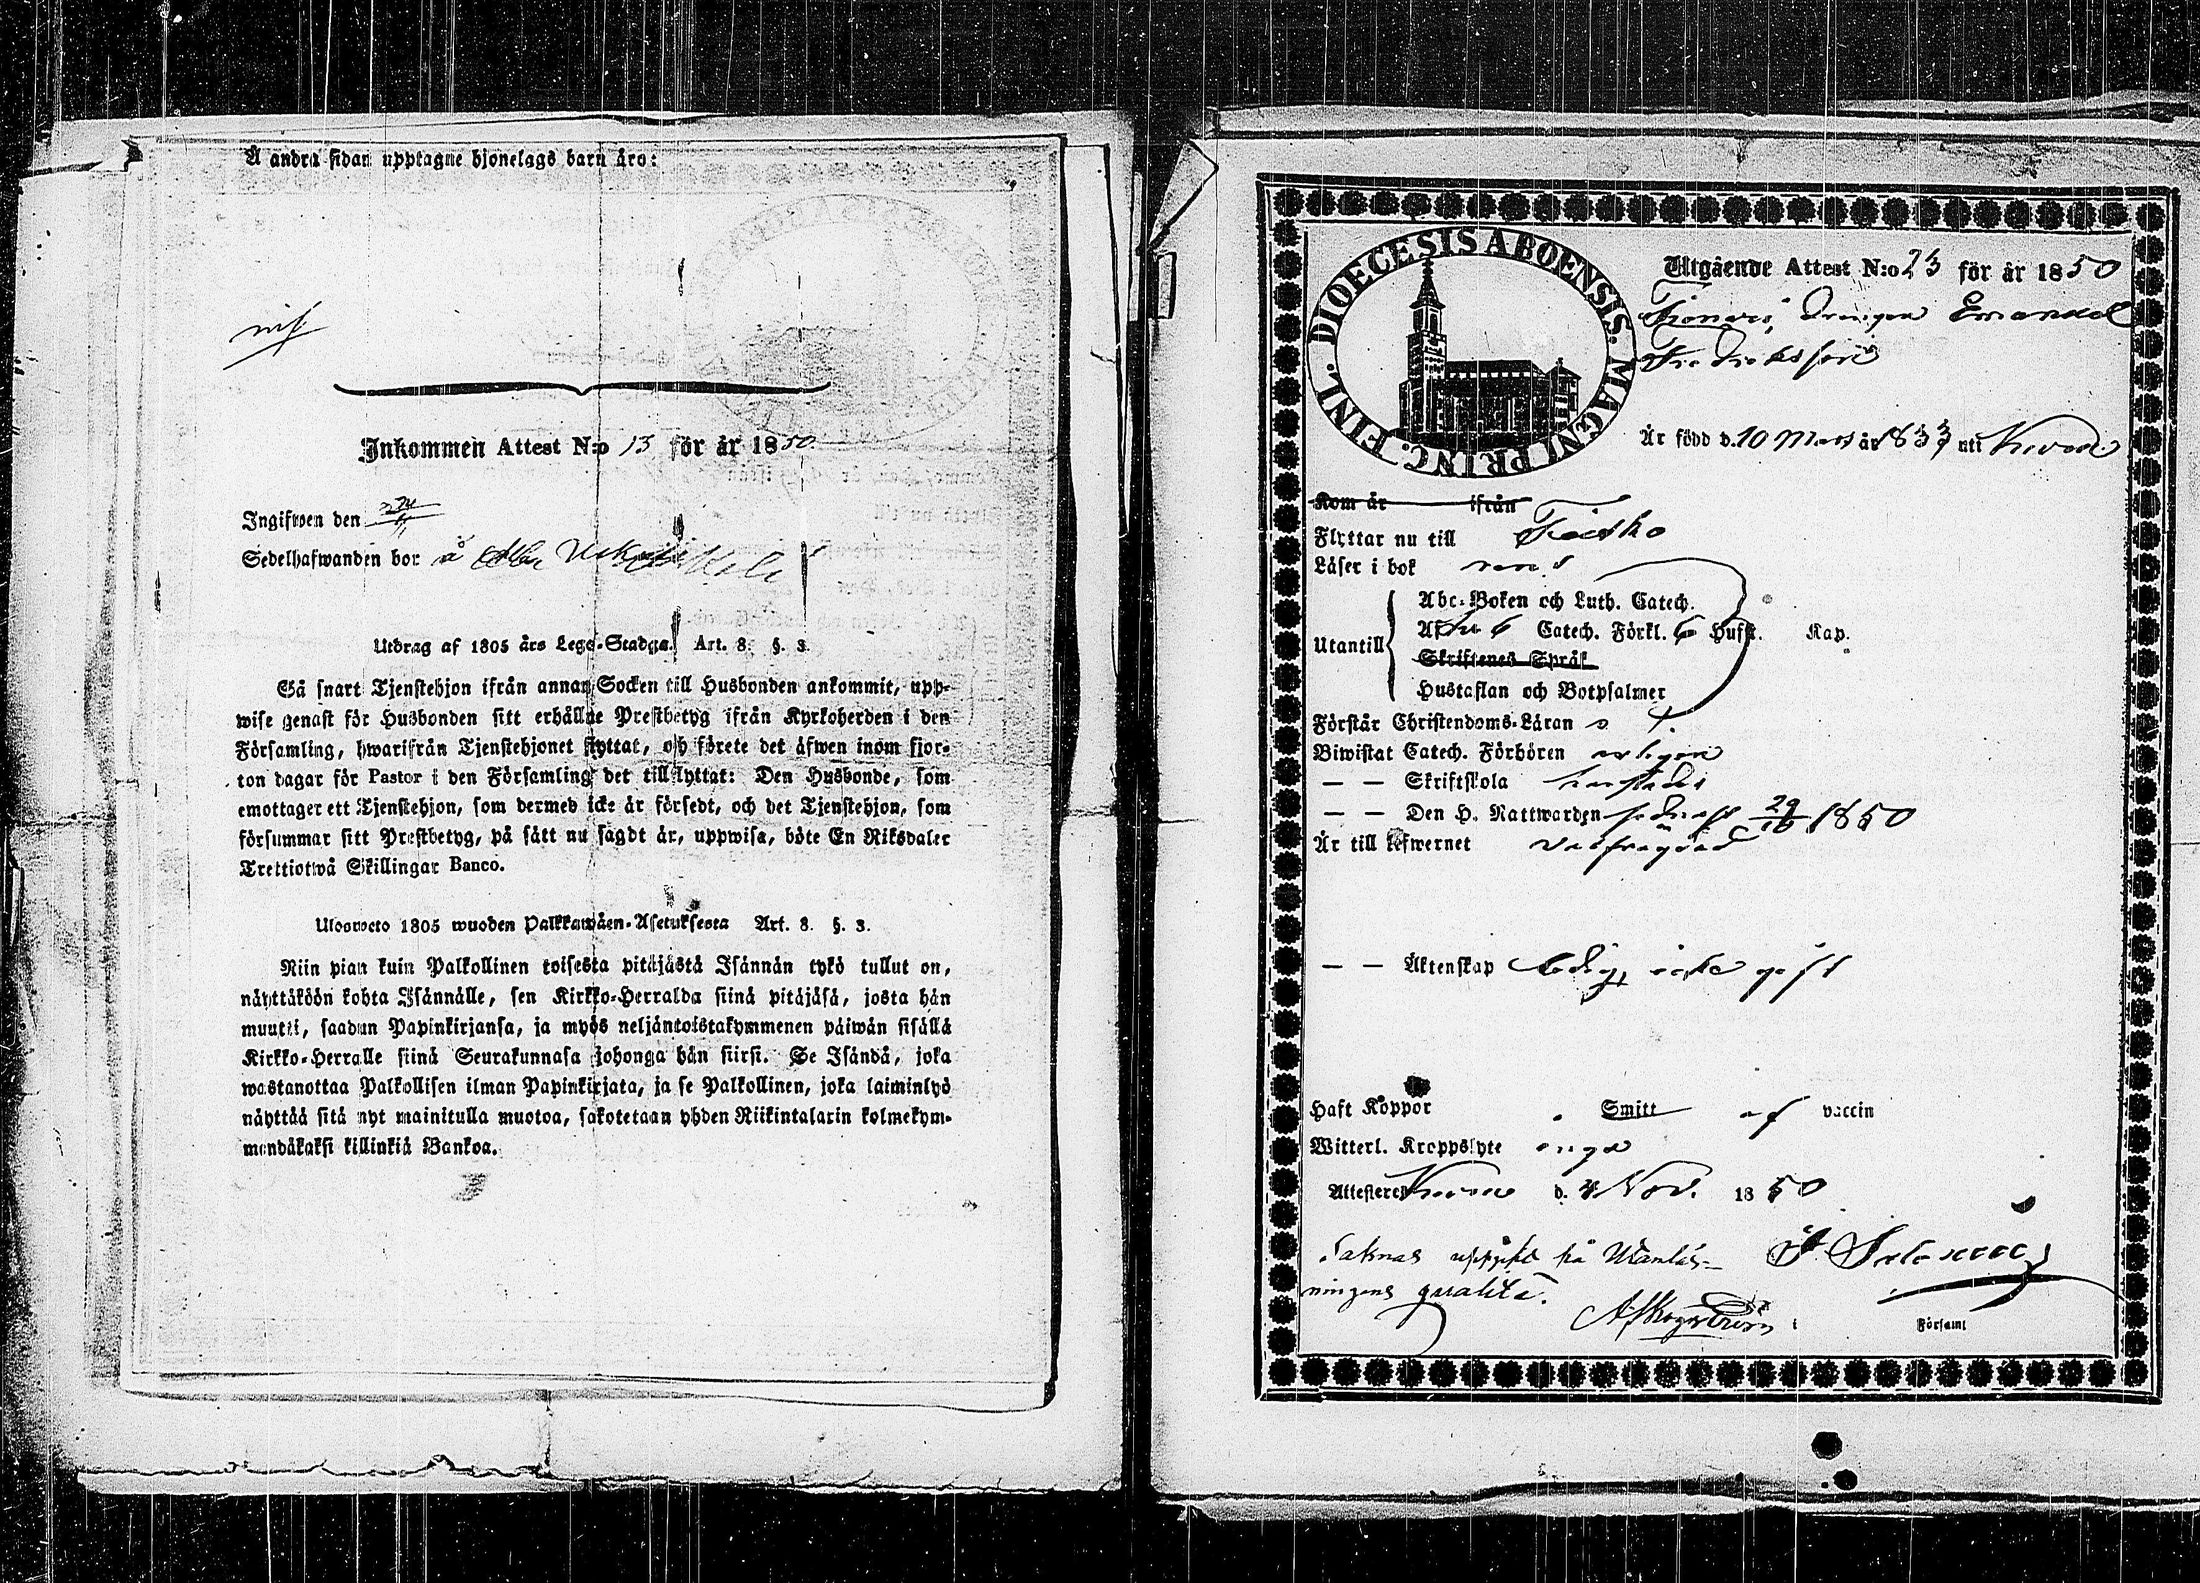 Å andra sidan upptagne hjonelags barn äro:
Inkommen Attest N:o 13 för år 1850
Ingifwen den
Sedelhafwanden bor å
Utdrag af 1805 års Lego-Stadga Art. 8. §. 3.
Så snart Tjenstehjon ifrån annan Socken till Husbonden ankommit, upp-
wise genast för Husbonden sitt erhållne Prestbetyg ifrån Kyrkoherden i den
Församling, hwarifrån Tjenstehjonet flyttat, och förete det äfwen inom fjor-
ton dagar för Pastor i den Församling det tillflyttat: Den Husbonde, som
emottager ett Tjenstehjon, som dermed icke är försedt, och det Tjenstehjon, som
försummar sitt Prestbetyg, på sätt nu sagdt är, uppwisa, böte En Riksdaler
Trettiotwå Skillingar Banco.
Ulosweto 1805 wuoden Palkkawäen-Asetuksesta Art. 8. §. 3.
Niin pian kuin Palkollinen toisesta pitäjästä Isännän tykö tullut on,
näyttäköön kohta Isännälle, sen Kirkko-Herralda siinä pitäjäsä, josta hän
muutti, saadun Papinkirjansa, ja myös neljäntoistakymmenen päiwän sisällä
Kirkko-Herralle siinä Seurakunnasa johonga hän siirsi. Se Isändä, joka
wastanottaa Palkollisen ilman Papinkirjata, ja se Palkollinen, joka laiminlyö
näyttää sitä nyt mainitulla muotoa, sakotetaan yhden Riikintalarin kolmekym-
mendäkaksi killinkiä Bankoa.
DIOECESIS ABOENSIS. MAGNI PRINC. FINL.
Utgående Attest N:o 23 för år 1850
drengen Emanuel
Fredriksson
Är född d. 10 Mars år 1833 uti
Kom år ifrån
Flyttar nu till
Läser i bok
Abc-Boken och Luth. Catech.
Utantill Catech. Förkl. 6 Hufst. Kap.
Skriftenes Språk
Hustaflan och Botpsalmer
Förstår Christendoms-Läran
Biwistat Catech. Förhören
— — Skriftskola
— — Den H. Nattwarden sednast 29/10 1850
Är till Lefwernet
— — Äktenskap ledig, icke gift
Haft Koppor Smitt af vaccin
Witterl. Kroppslyte inga
Attesteres d. 4 Nov. 1850
Saknas uppgift på Utanläs-
ningens qualité.
i Församl